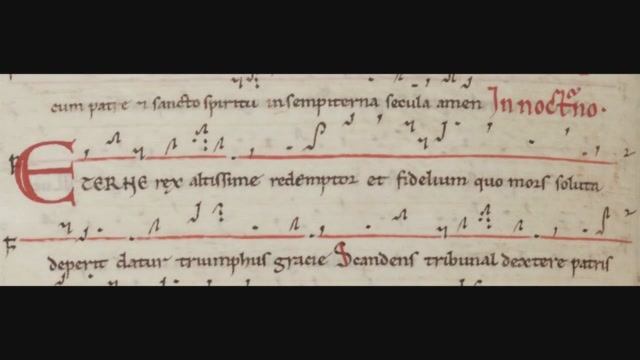 cum patre ⁊ sancto spiritu in sempiterna secula amen In noct̃no.
ETERNE rex altissime redemptor et fidelium quo mors soluta
deperit datur triumphus gracie Scandens tribunal dextere patris